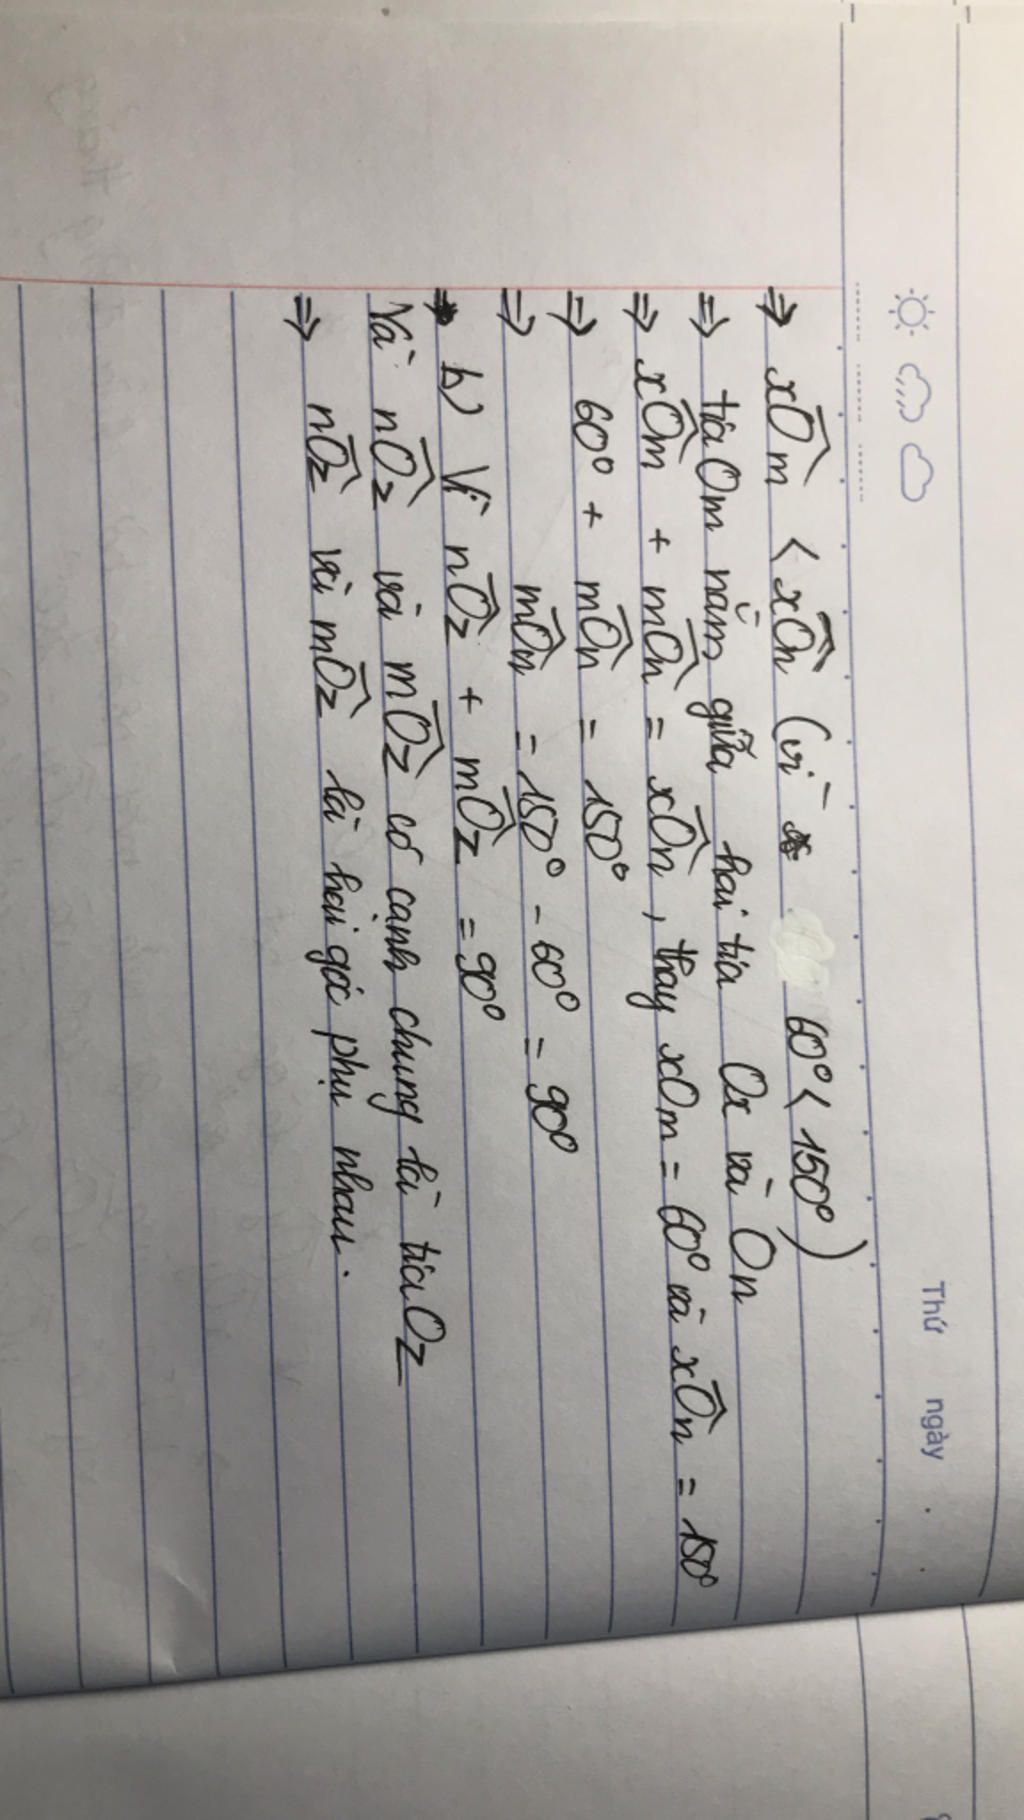 Thứ ngày
⇒ xÔm < xÔn (vì 60° < 150°)
⇒ tia Om nằm giữa hai tia Ox và On
⇒ xÔm + mÔn = xÔn, thay xOm = 60° và xÔn = 150°
⇒ 60° + mÔn = 150°
⇒ mÔn = 150° - 60° = 90°
b) Vì nÔz + mÔz = 90°
Và nÔz và mÔz có cạnh chung là tia Oz
⇒ nÔz và mÔz là hai góc phụ nhau.